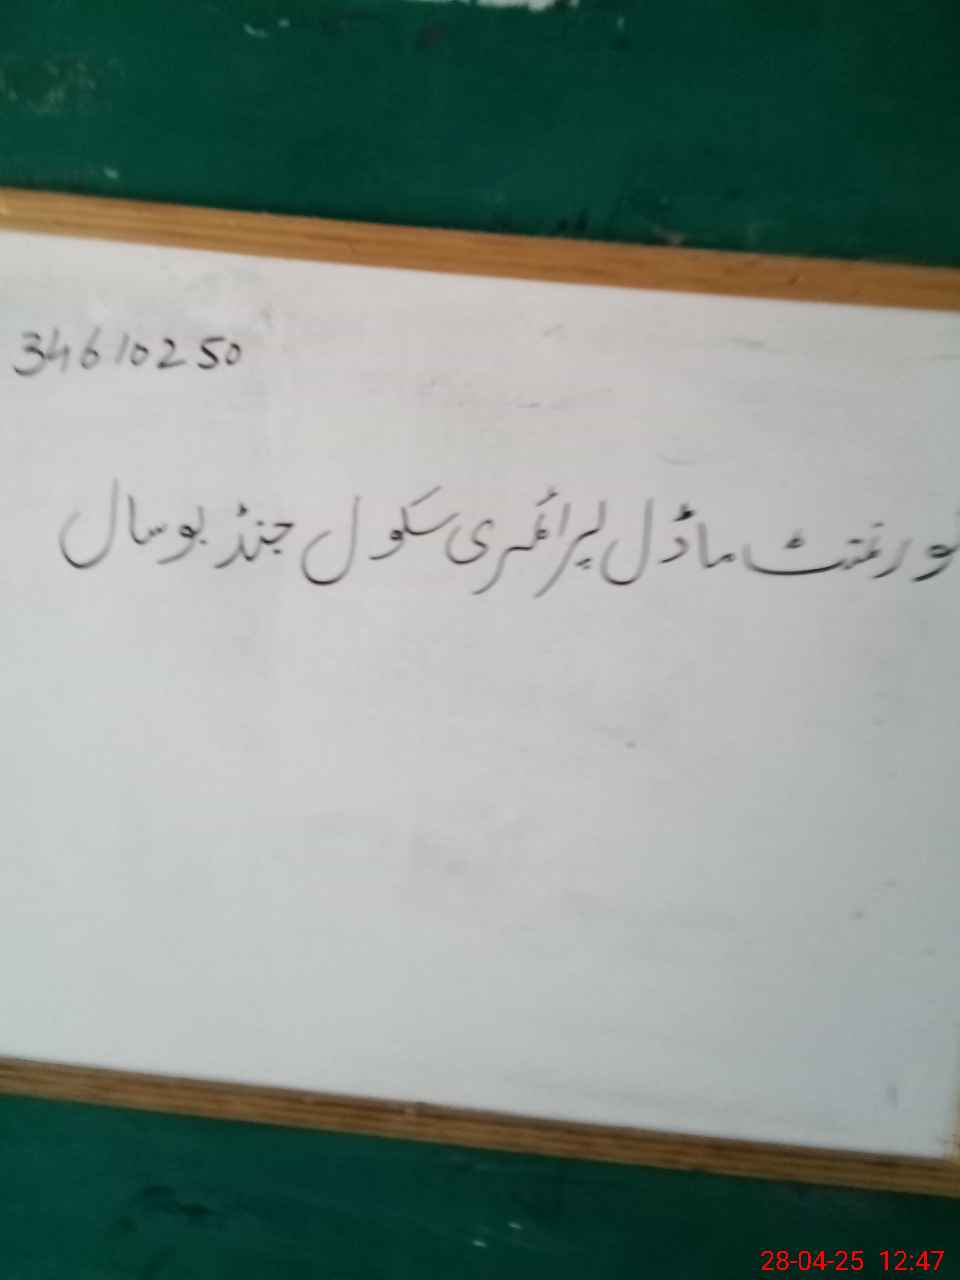 34610250
گورنمنٹ ماڈل پرائمری سکول جنڈ بوسال
28-04-25 12:47